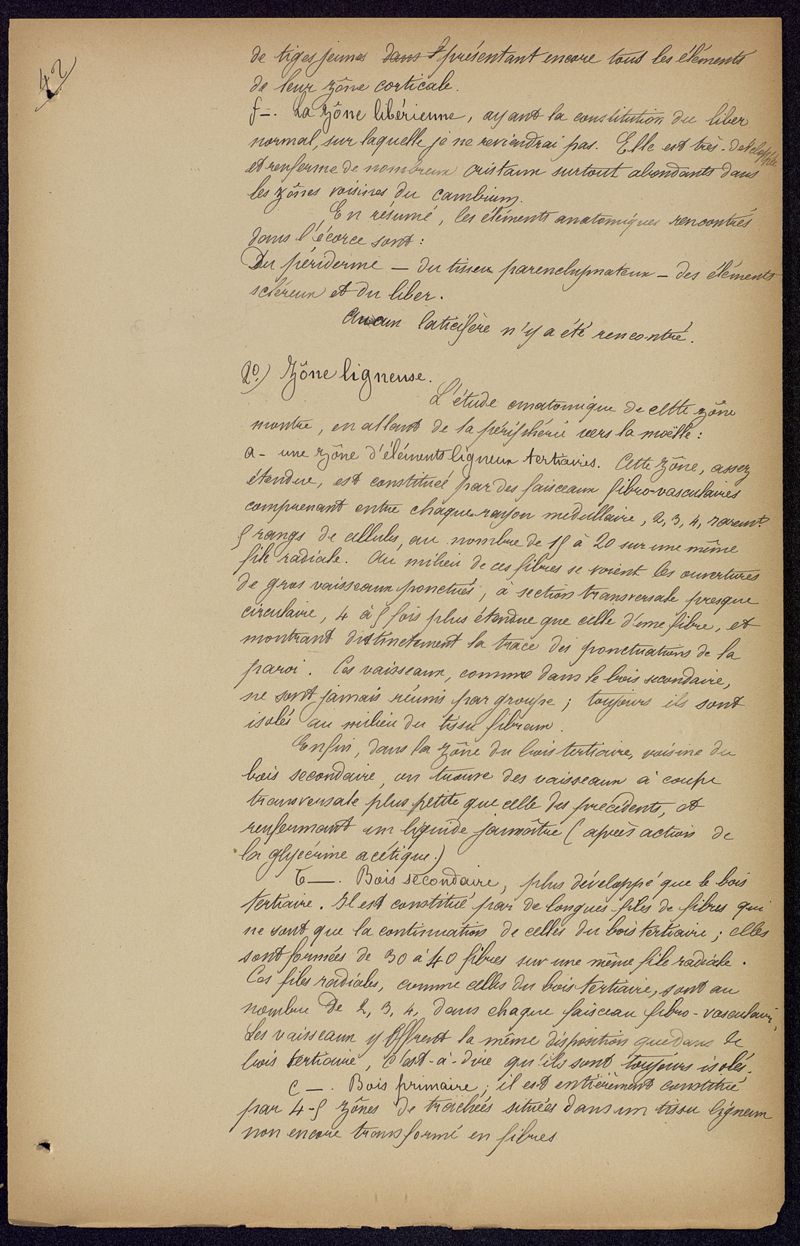 42
de tiges jeunes dans présentant encore tous les éléments
de leur zône corticale.
f-. La zône libérienne, ayant la constitution du liber
normal, sur laquelle je ne reviendrai pas. Elle est très-développée
et renferme de nombreux cristaux surtout abondants dans
les zônes voisines du cambium.
En résumé, les éléments anatomiques rencontrés
dans l'écorce sont :
Du périderme - du tissu parenchymateux - des éléments
scléreux et du liber.
Aucun laticifère n'y a été rencontré.
2o.) Zône ligneuse.
L'étude anatomique de cette zône
montre, en allant de la périphérie vers la moëlle :
a- une zône d'éléments ligneux tertiaires. Cette zône, assez
étendue, est constituée par des faisceaux fibro-vasculaires
comprenant entre chaque rayon médullaire, 2, 3, 4, rarement
5 rangs de cellules, au nombre de 15 à 20 sur une même
file radiale. Au milieu de ces fibres se voient les ouvertures
de gros vaisseaux ponctués, à section transversale presque
circulaire, 4 à 5 fois plus étendue que celle d'une fibre, et
montrant distinctement la trace des ponctuations de la
paroi. Ces vaisseaux, comme dans le bois secondaire,
ne sont jamais réunis par groupe ; toujours ils sont
isolés au milieu du tissu fibreux.
Enfin, dans la zône du bois tertiaire voisine du
bois secondaire, on trouve des vaisseaux à coupe
transversale plus petite que celle des précédents, et
renfermant un liquide jaunâtre (après action de
la glycérine acétique.)
b-. Bois secondaire, plus développé que le bois
tertiaire. Il est constitué par de longues files de fibres qui
ne sont que la continuation de celles du bois tertiaire ; elles
sont formées de 30 à 40 fibres sur une même file radiale.
Ces files radiales, comme celles du bois tertiaire, sont au
nombre de 2, 3, 4, dans chaque faisceau fibro-vasculaire.
Les vaisseaux y offrent la même disposition que dans le
bois tertiaire, c'est-à-dire qu'ils sont toujours isolés.
c-. Bois primaire ; il est entièrement constitué
par 4-5 zônes de trachées situées dans un tissu ligneux
non encore transformé en fibres